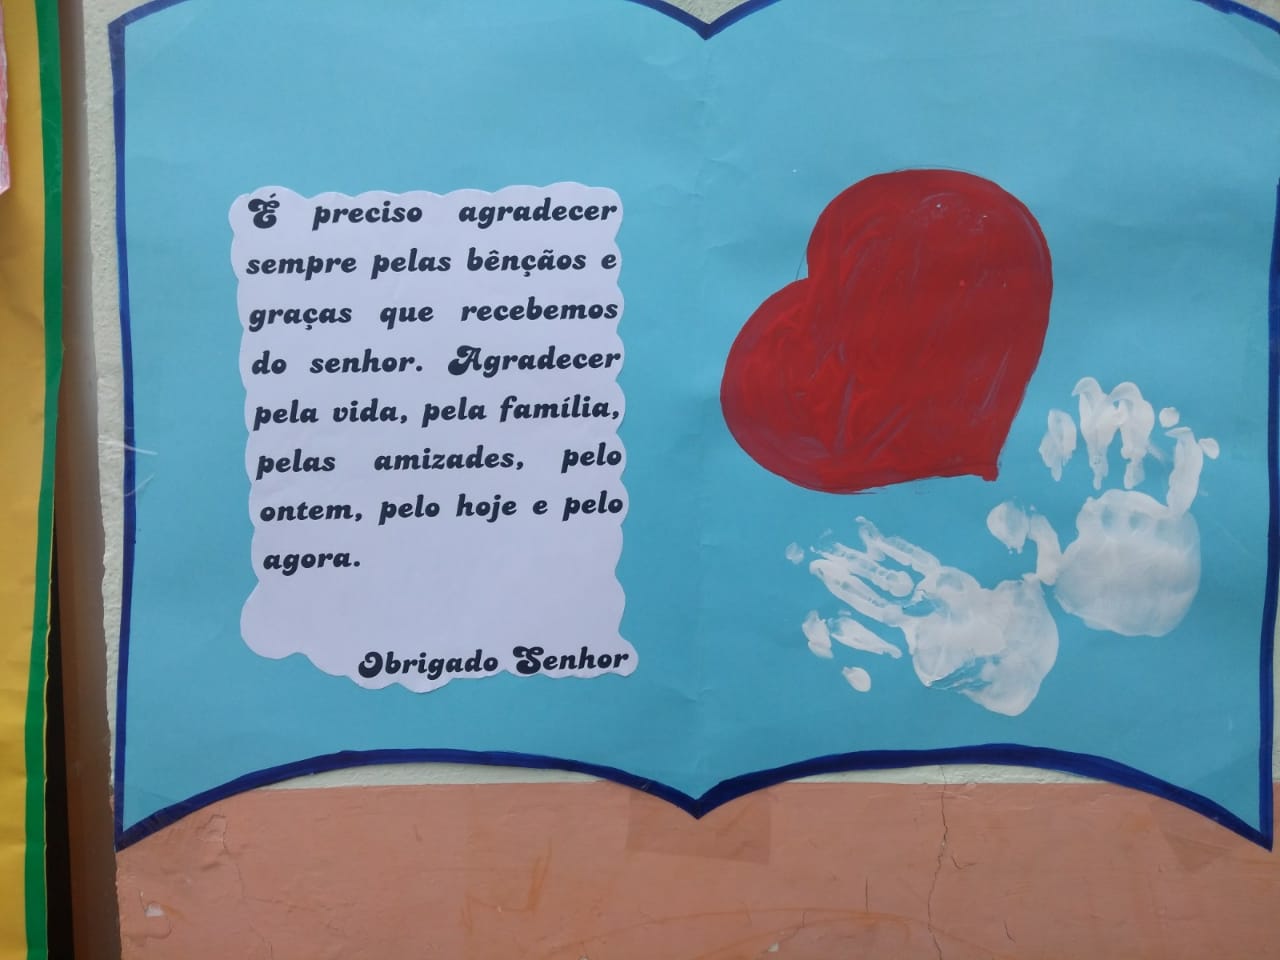 É preciso agradecer
sempre pelas bênçãos e
graças que recebemos
do senhor. Agradecer
pela vida, pela família,
pelas amizades, pelo
ontem, pelo hoje e pelo
agora.
Obrigado Senhor